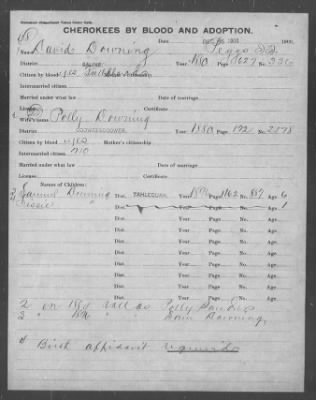 CHEROKEES BY BLOOD AND ADOPTION.
Date 1901 1900.
Name David Downing
District SALINE Year 1880 Page 627 No. 336
Citizen by blood yes Mother's citizenship
Intermarried citizen
Married under what law Date of marriage
License Certificate
Wife's name Polly Downing
District GOINGSNAKE Year 1880 Page No. 2178
Citizen by blood yes Mother's citizenship
Intermarried citizen no
Married under what law Date of marriage
License Certificate
Names of Children:
Samuel Downing Dist. TAHLEQUAH Year 1896 Page 1162 No. 887 Age 6
Dist. Year Page No. Age 1
Dist. Year Page No. Age
Dist. Year Page No. Age
Dist. Year Page No. Age
Dist. Year Page No. Age
Dist. Year Page No. Age
Dist. Year Page No. Age
Dist. Year Page No. Age
2 on 1880 roll as Polly
3 " 1896 " " Downing
4 Birth affidavit required